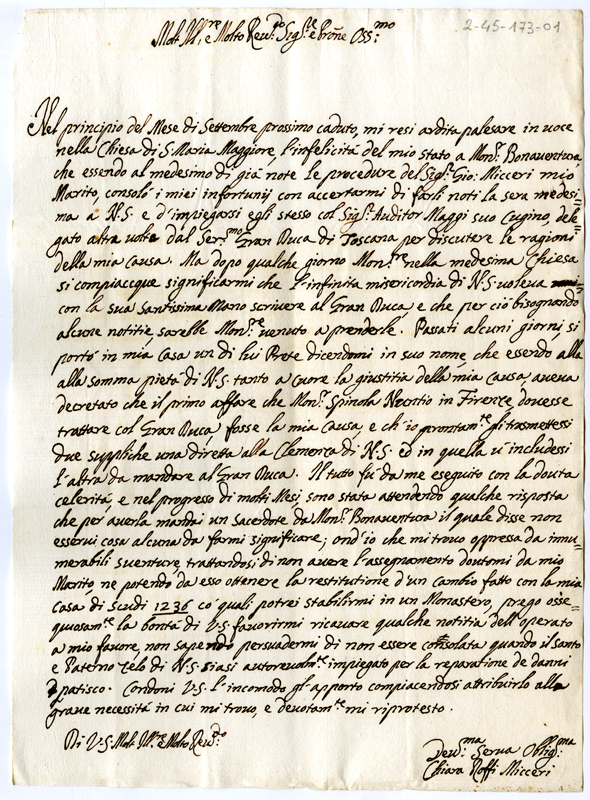 2-45-173-01
Molt' Ill.re, e Molto Reu.do Sig.re e Prone Oss.mo
Nel principio del Mese di Settembre prossimo caduto, mi resi ardita palesare in uoce
nella Chiesa di S. Maria Maggiore, l'infelicità del mio stato a Mon.r Bonauentura,
che essendo al medesimo di già note le procedure del Sig.r Gio: Micceri mio
Marito, consolò i miei infortunij con accertarmi di farli noti la sera medesi=
ma à N.S. e d'impiegarsi egli stesso col Sig.r Auditor Maggi suo Cugino, dele=
gato altre uolte dal Ser.mo Gran Duca di Toscana per discutere le ragioni
della mia causa. Ma dopo qualche giorno Mon.re nella medesima Chiesa
si compiacque significarmi che l'infinita misericordia di N.S. uoleua
con la sua santissima Mano scriuere al Gran Duca, e che per ciò bisognando
alcune notitie sarebbe Mon.re uenuto a prenderle. Passati alcuni giorni, si
portò in mia Casa un di lui Prete dicendomi in suo nome, che essendo alla
alla somma pietà di N.S. tanto a cuore la giustitia della mia causa, aueua
decretato che il primo affare che Mon.r Spinola Nuntio in Firenze, douesse
trattare col Gran Duca, fosse la mia Causa, e ch'io prontam.te gli trasmettessi
due suppliche una diretta alla Clemenza di N.S. ed in quella u'includessi
l'altra da mandare al Gran Duca. Il tutto fù da me eseguito con la douta
celerità, e nel progresso di molti Mesi sono stata attendendo qualche risposta
che per auerla mandai un Sacerdote da Mon.r Bonauentura il quale disse non
esserui cosa alcuna da farmi significare; ond'io che mi trouo oppressa da innu=
merabili suenture, trattandosi di non auere l'assegnamento doutomi da mio
Marito, ne potendo da esso ottenere la restitutione d'un Cambio fatto con la mia
Casa di Scudi 1236 co' quali potrei stabilirmi in un Monastero, prego osse=
quiosam.te la bontà di V.S. fauorirmi ricauare qualche notitia dell'operato
a mio fauore, non sapendo persuadermi di non essere consolata quando il santo
e Paterno zelo di N.S. siasi autoreuolm.te impiegato per la reparatione de danni
patisco. Condoni V.S. l'incomodo gl'apporto compiacendosi attribuirlo alla
graue necessità in cui mi trouo, e deuotam.te mi riprotesto.
Di V.S. Molt' Ill.re e Molto Reu.do
Deu.ma Serua Oblig.ma
Chiara Roffi Micceri